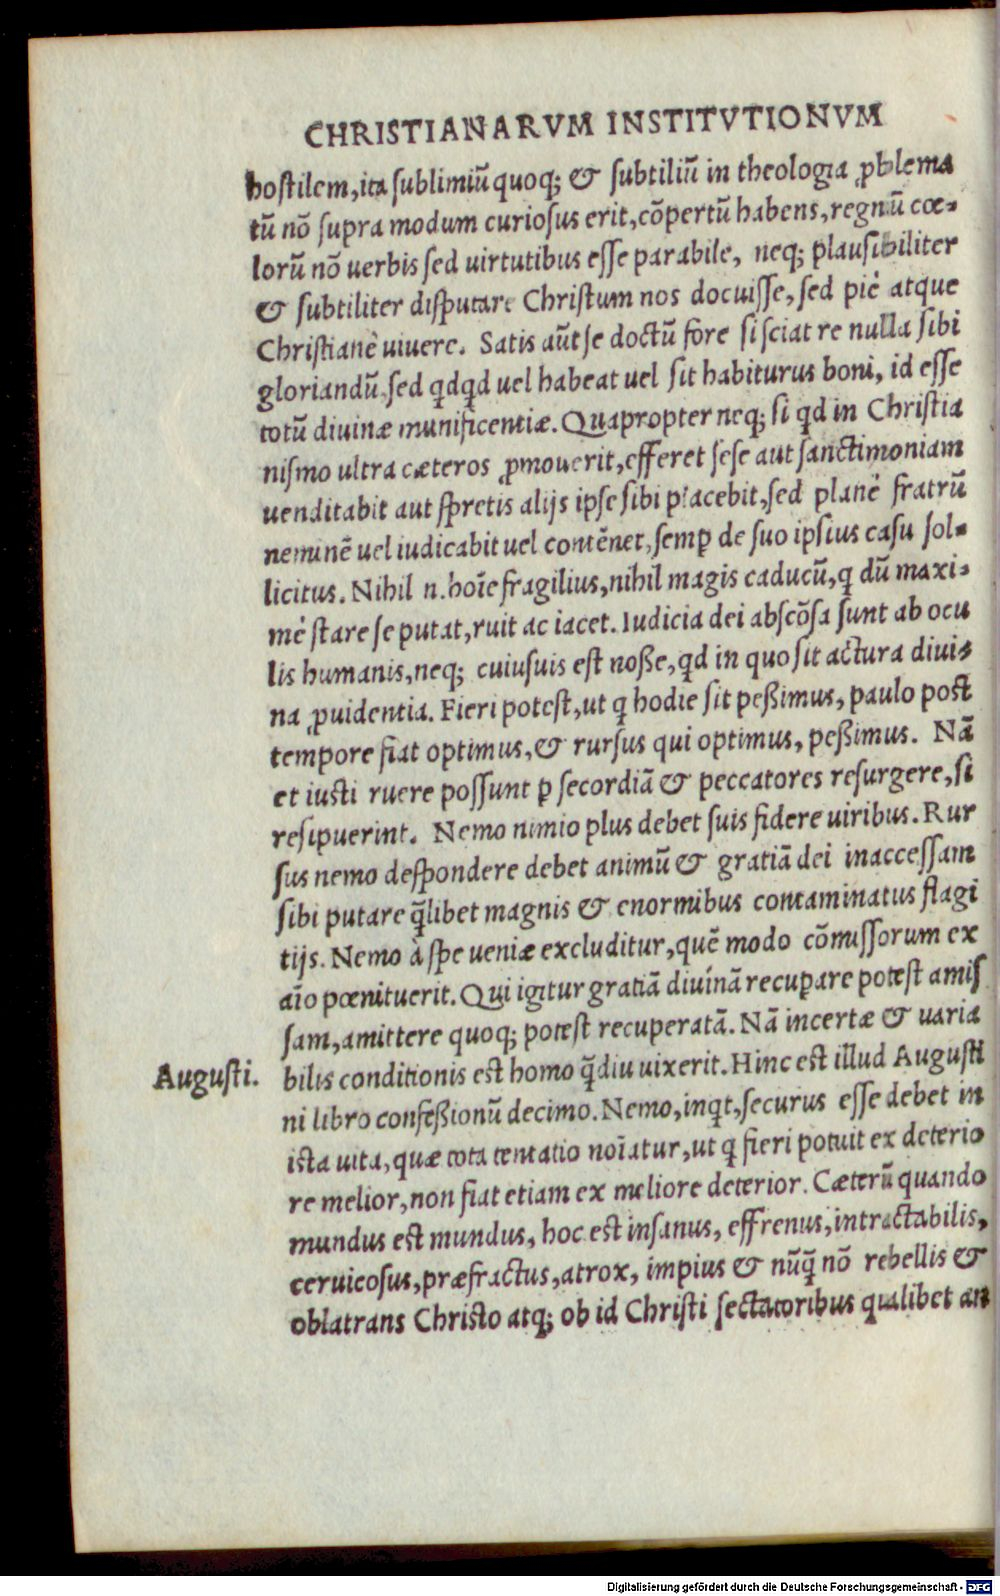 CHRISTIANARVM INSTITVTIONVM
hostilem,ita sublimiũ quoq; & subtiliũ in theologia ꝓblema
tũ nõ supra modum curiosus erit,cõpertũ habens,regnũ cœ-
lorũ nõ uerbis sed uirtutibus esse parabile, neq; plausibiliter
& subtiliter disputare Christum nos docuisse,sed piè atque
Christianè uiuere. Satis aũt se doctũ fore si sciat re nulla sibi
gloriandũ,sed qdqd uel habeat uel sit habiturus boni, id esse
totũ diuinæ munificentiæ. Quapropter neq; si qd in Christia
nismo ultra cæteros ꝓmouerit,efferet sese aut sanctimoniam
uenditabit aut spretis alijs ipse sibi placebit,sed planè fratrũ
neminẽ uel iudicabit uel contẽnet,semꝑ de suo ipsius casu sol-
licitus. Nihil n. hoĩe fragilius,nihil magis caducũ,q dũ maxi-
mè stare se putat,ruit ac iacet. Iudicia dei abscõsa sunt ab ocu
lis humanis,neq; cuiusuis est noße,qd in quo sit actura diui-
na ꝓuidentia. Fieri potest,ut q hodie sit peßimus, paulo post
tempore fiat optimus,& rursus qui optimus, peßimus. Nã
et iusti ruere possunt ꝑ secordiã & peccatores resurgere,si
resipuerint. Nemo nimio plus debet suis fidere uiribus. Rur
sus nemo despondere debet animũ & gratiã dei inaccessam
sibi putare q̃libet magnis & enormibus contaminatus flagi
tijs. Nemo à spe ueniæ excluditur,quẽ modo cõmissorum ex
aĩo pœnituerit. Qui igitur gratiã diuinã recuꝑare potest amis
sam,amittere quoq; potest recuperatã. Nã incertæ & uaria
Augusti. bilis conditionis est homo q̃diu uixerit. Hinc est illud Augusti
ni libro confeßionũ decimo. Nemo,inqt,securus esse debet in
ista uita,quæ tota tentatio noĩatur,ut q fieri potuit ex deterio
re melior,non fiat etiam ex meliore deterior. Cæterũ quando
mundus est mundus, hoc est insanus, effrenus,intractabilis,
ceruicosus,præfractus,atrox, impius & nũq̃ nõ rebellis &
oblatrans Christo atq; ob id Christi sectatoribus qualibet an
Digitalisierung gefördert durch die Deutsche Forschungsgemeinschaft - DFG